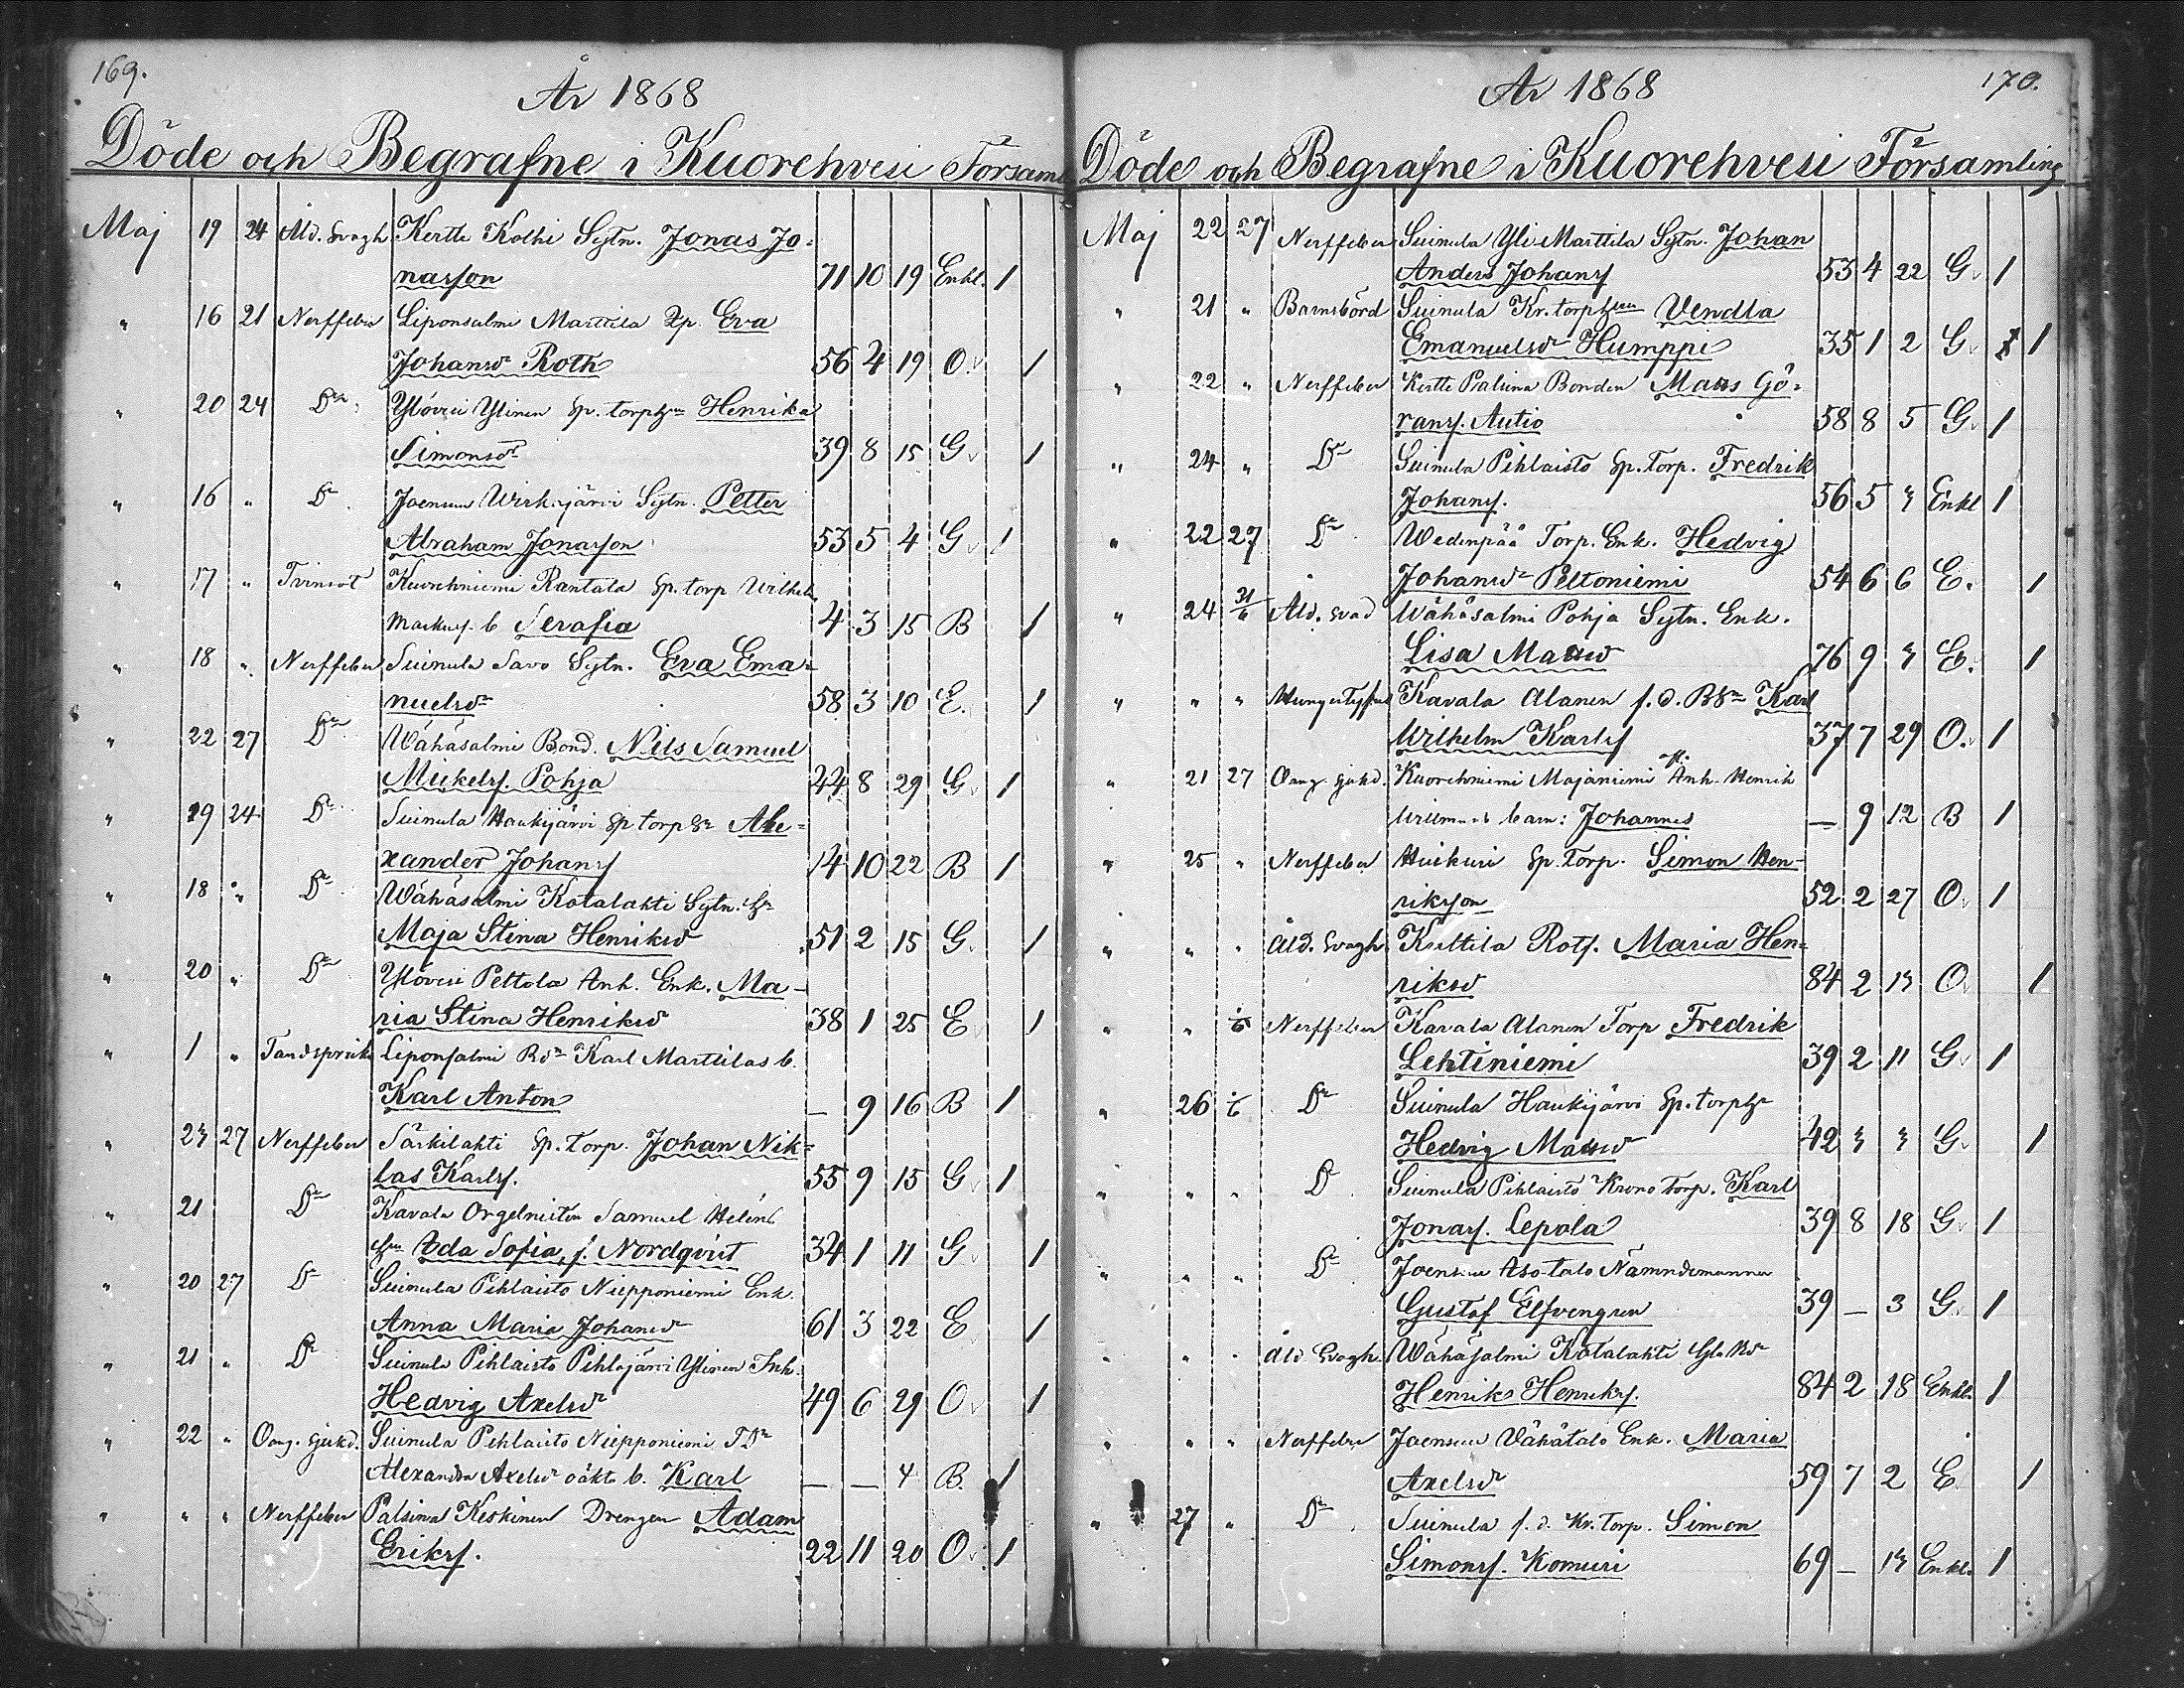 169.
År 1868
Döde och Begrafne i Kuorehvesi Församl
Maj 19 24 Åld. Svagh Kertte Kolhi Sytn. Jonas Jo-
nasson 71 10 19 Enkl. 1
" 16 21 Nerffeber Liponsalmi Marttila Pp. Eva
Johansdr Roth 56 4 19 O. 1
" 20 24 Do Ylövesi Ylinen Sp. torp Henrika
Simonsdr 39 8 15 G 1
" 16 " Do Joensuu Sytn. Petter
Abraham Jonasson 53 5 4 G 1
" 17 " Tvinsot Kuorehniemi Rantala Sp. torp Wilhelm
Markusf. b Serafia 4 3 15 B 1
" 18 " Nerffeber Suinula Savo Sytn. Eva Ema-
nuelsdr 58 3 10 E. 1
" 22 27 Do Wähäsalmi Bond. Nils Samuel
Mickelsf. Pohja 44 8 29 G 1
" 19 24 Do Suinula Haukijärvi Sp torp Ale-
xander Johansf 14 10 22 B 1
" 18 " Do Wähäsalmi Kotalahti Sytn. h
Maja Stina Henriksd 51 2 15 G. 1
" 20 " Do Ylövesi Peltola Inh. Enk. Ma-
ria Stina Henriksd 38 1 25 E 1
" 1 " Tandsprick Liponsalmi Karl Marttilas b.
Karl Anton — 9 16 B 1
" 23 27 Nerffeber Särkilahti Sp. torp. Johan Nik-
las Karlsf. 55 9 15 G 1
" 21 Do Kavala Orgelnisten Samuel Heléns
h Ida Sofia, f. Nordqvist 34 1 11 G 1
" 20 27 Do Suinula Pihlaisto Niepponiemi Enk.
Anna Maria Johansdr 61 3 22 E 1
" 21 " Do Suinula Pihlaisto Pihlajärvi Ylinen Inh.
Hedvig Axelsdr 49 6 29 O 1
" 22 " Oang. sjukd. Suinula Pihlaisto Niepponiemi
Alexandra Axelsdr oäkta b. Karl — — 4 B. 1
" " " Nerffeber Palsina Keskinen Drengen Adam
Eriksf. 22 11 20 O 1
170.
År 1868
Döde och Begrafne i Kuorehvesi Församling
Maj 22 27 Nerffeber Suinula Yli Marttila Sytn. Johan
Anders Johansf 53 4 22 G 1
" 21 " Barnsbörd Suinula Kr. torph Vendla
Emanuelsdr Humppi 35 1 2 G 1
" 22 " Nerffeber Kertte Palsina Bonden Mats Gö-
ransf. Autio 58 8 5 G 1
" 24 " Do Suinula Pihlaisto Sp. Torp. Fredrik
Johansf. 56 5 3 Enkl 1
" 22 27 Do Wedenpää Torp. Enk. Hedvig
Johansdr Peltoniemi 54 6 6 E. 1
" 24 31/6 Åld. svag Wähäsalmi Pohja Sytn. Enk.
Lisa Matsd 76 9 3 E. 1
" " " Hungertyfus Kavala Alanen f. d. Karl
Wilhelm Karlsf 37 7 29 O. 1
" 21 27 Oang. sjukd. Kuorehniemi Majaniemi Inh. Henrik
barn: Johannes — 9 12 B 1
" 25 " Nerffeber Huikuri Sp. Torp. Simon Hen-
rikson 52 2 27 O 1
" " " Åld. Svagh. Kullila Rotf. Maria Hen-
riksd 84 2 13 O 1
" " Nerffeber Kavala Alanen Torp Fredrik
Lehtiniemi 39 2 11 G 1
" 26 Do Suinula Haukijärvi Sp. torph
Hedvig Matsd 42 3 3 G 1
" " " Do Suinula Pihlaisto Krono Torp. Karl
Jonasf. Lepola 39 8 18 G 1
" " " Do Joensuu Iso-talo Nämndemannen
Gustaf Elfvengren 39 — 3 G 1
" " " Åld Svagh. Wähäsalmi Kotalahti
Henrik Henriksf. 84 2 18 Enkl. 1
" " " Nerffeber Joensuu Vähätalo Enk. Maria
Axelsdr 59 7 2 E 1
" 27 " Do Suinula f. d. Kr. Torp. Simon
Simonsf. Komuri 69 — 13 Enkl. 1